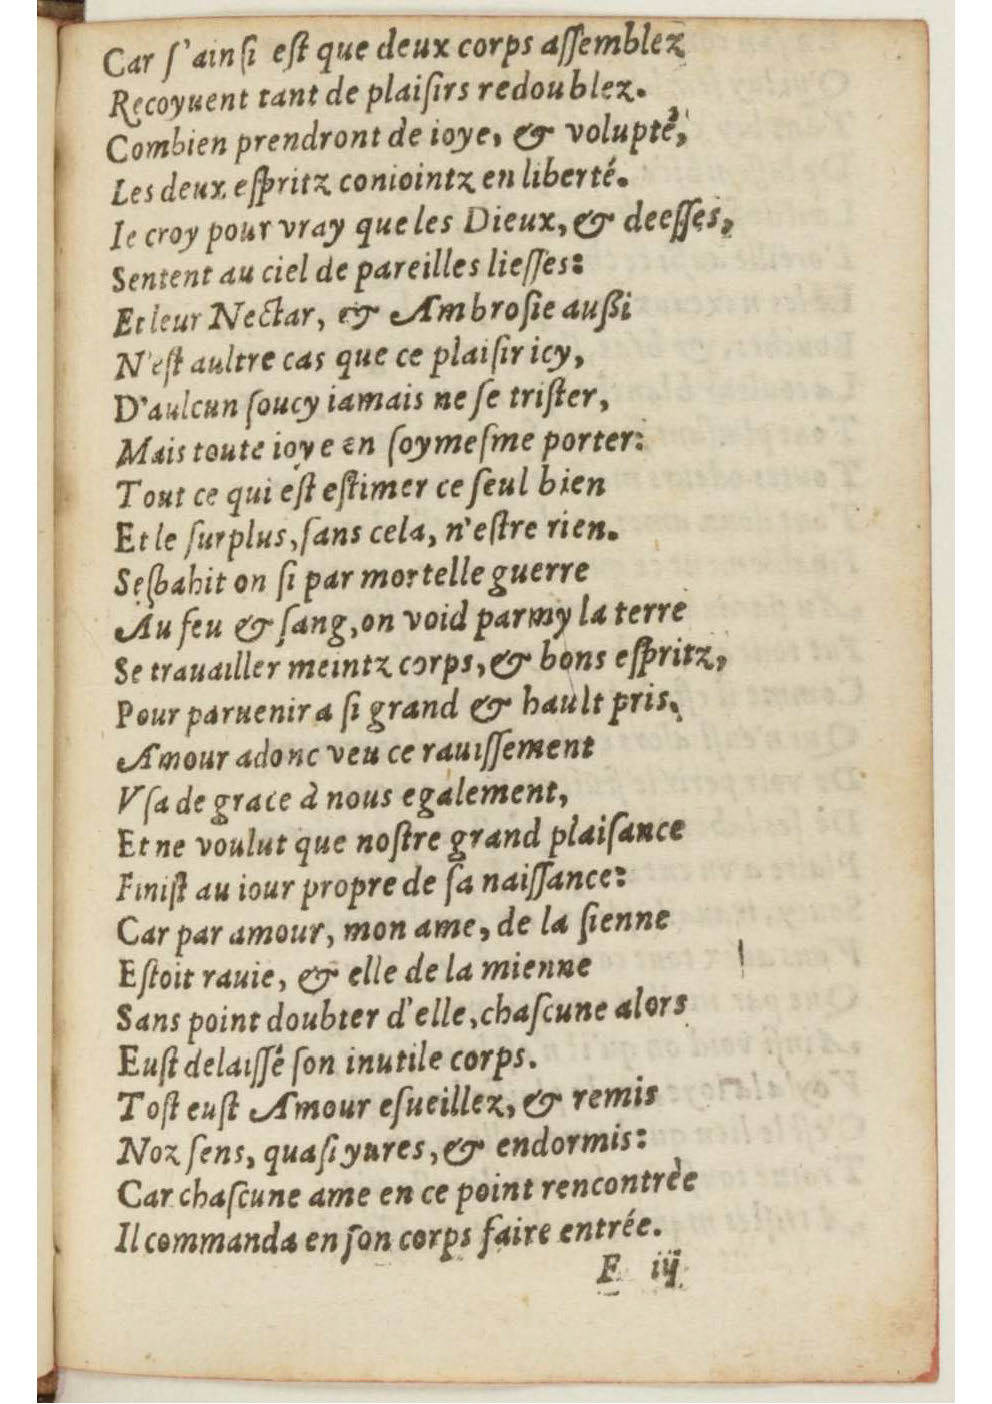 Car ſ'ainſi eſt que deux corps aſſemblez
Reçoyuent tant de plaiſirs redoublez.
Combien prendront de ioye, & volupté,
Les deux eſpritz coniointz en liberté.
Ie croy pour vray que les Dieux, & deeſſes,
Sentent au ciel de pareilles lieſſes:
Et leur Nectar, & Ambroſie außi
N'eſt aultre cas que ce plaiſir icy,
D'aulcun ſoucy iamais ne ſe triſter,
Mais toute ioye en ſoymeſme porter:
Tout ce qui eſt eſtimer ce ſeul bien
Et le ſurplus, ſans cela, n'eſtre rien.
Seſbahit on ſi par mortelle guerre
Au feu & ſang, on void parmy la terre
Se trauailler meintz corps, & bons eſpritz,
Pour paruenir a ſi grand & hault pris.
Amour adonc veu ce rauiſſement
Vſa de grace à nous egalement,
Et ne voulut que noſtre grand plaiſance
Finiſt au iour propre de ſa naiſſance:
Car par amour, mon ame, de la ſienne
Eſtoit rauie, & elle de la mienne
Sans point doubter d'elle, chaſcune alors
Euſt delaiſſé ſon inutile corps.
Toſt euſt Amour eſueillez, & remis
Noz ſens, quaſi yures, & endormis:
Car chaſcune ame en ce point rencontrèe
Il commanda en ſon corps faire entrée.
F iij